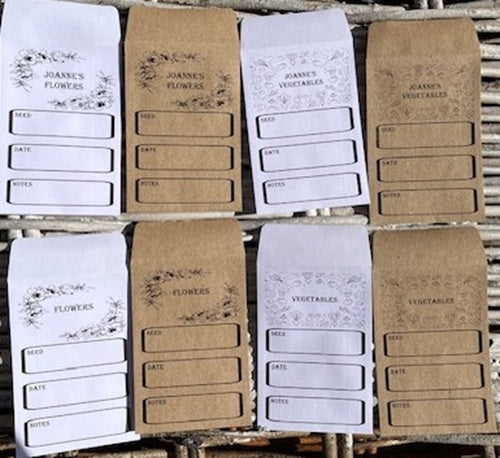 JOANNE'S
FLOWERS
SEED
DATE
NOTES
JOANNE'S
FLOWERS
SEED
DATE
NOTES
JOANNE'S
VEGETABLES
SEED
DATE
NOTES
JOANNE'S
VEGETABLES
SEED
DATE
NOTES
FLOWERS
SEED
DATE
NOTES
FLOWERS
SEED
DATE
NOTES
VEGETABLES
SEED
DATE
NOTES
VEGETABLES
SEED
DATE
NOTES